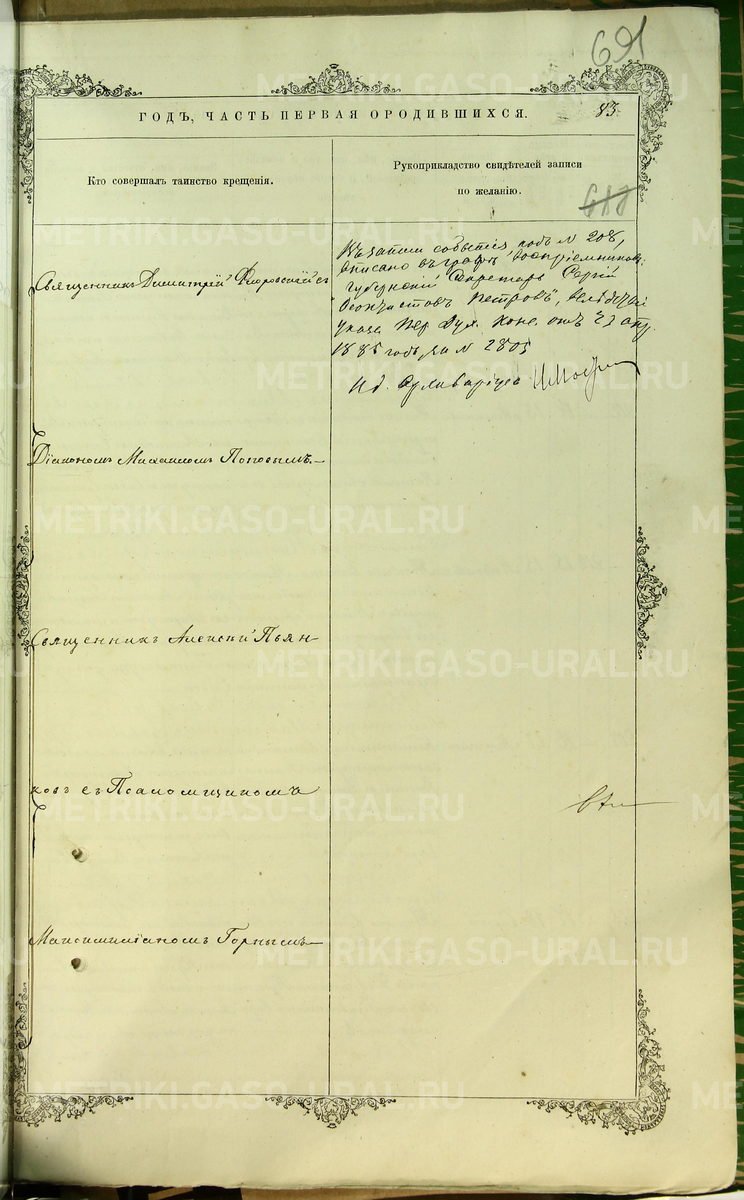 691
ГОДЪ, ЧАСТЬ ПЕРВАЯ О РОДИВШИХСЯ.
83.
Кто совершалъ таинство крещенія.
Рукоприкладство свидѣтелей записи
по желанію.
688
Въ записи событія подъ № 208,
вписано въ графѣ воспріемниковъ:
Губернскій Секретарь Сергій
Петровъ,
Указа Пер. Дух. Конс. отъ 23 апр.
1885 года, за № 2805
И д. Архиваріуса
Священникъ Димитрій Флоровскій съ
Діакономъ Михаиломъ Поповымъ.
Священникъ Алексій Пьян-
ковъ съ Псаломщикомъ
Максимиліаномъ Горнымъ
METRIKI.GASO-URAL.RU